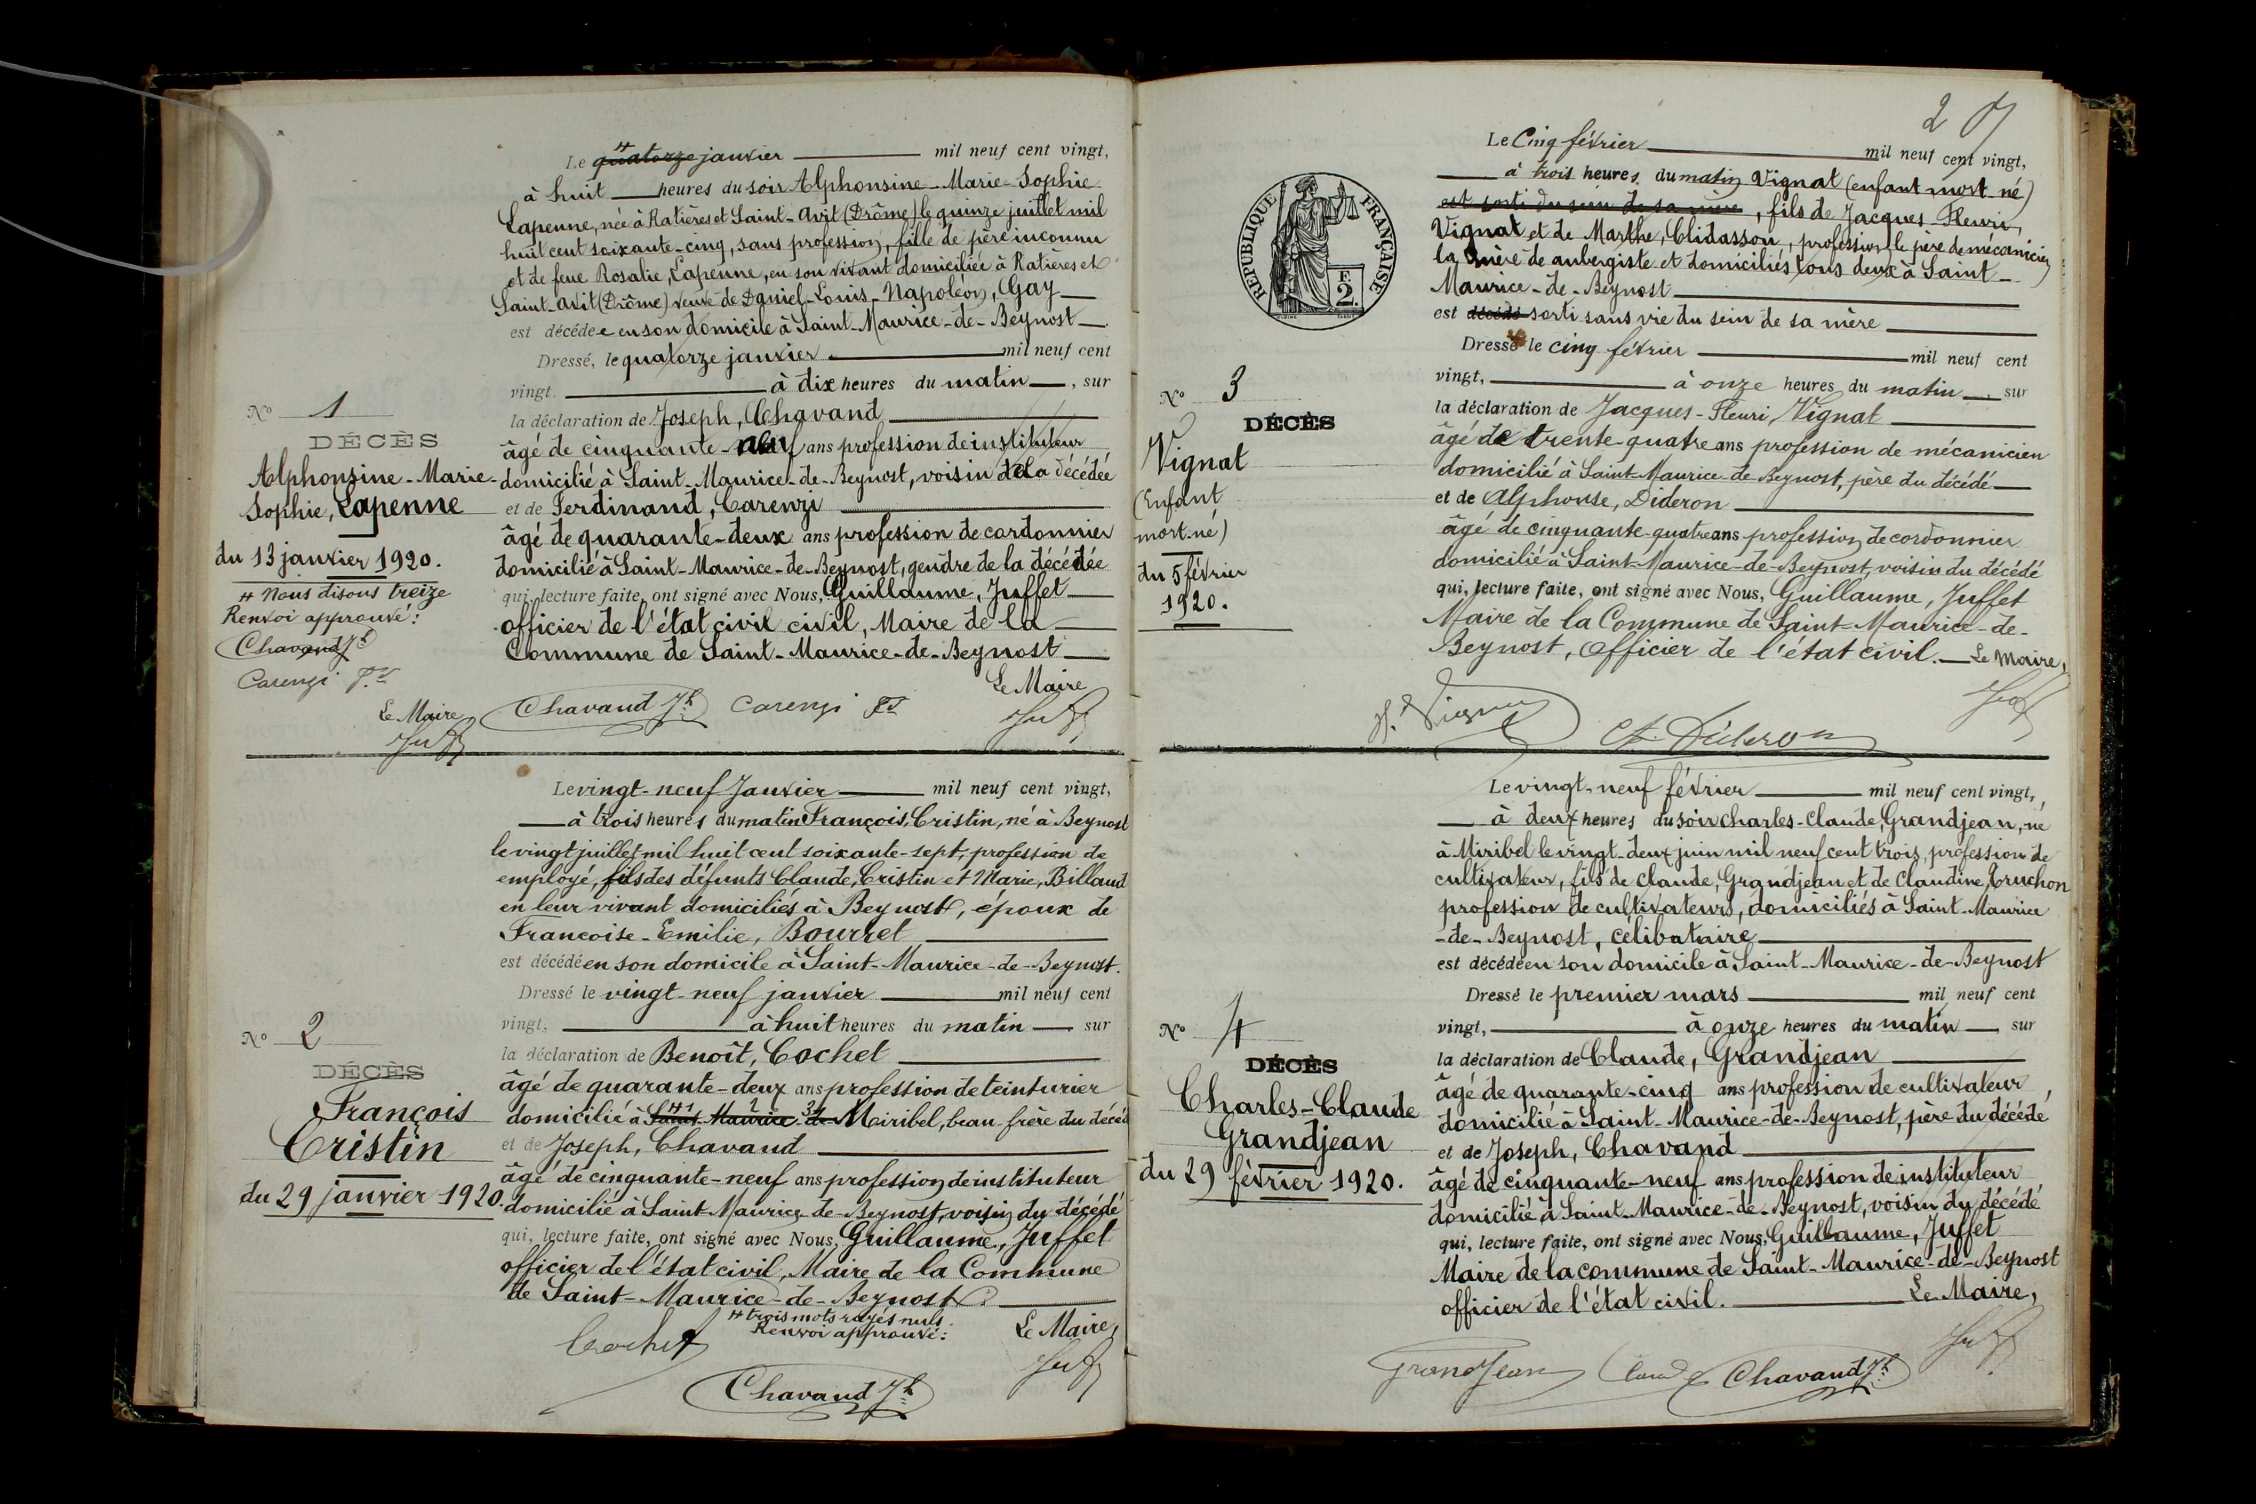 Le quatorze janvier mil neuf cent vingt,
à huit heures du soir Alphonsine-Marie-Sophie
Lapenne, née à Ratières et Saint-Avit (Drôme) le quinze juillet mil
huit cent soixante-cinq, sans profession, fille de père inconnu
et de feue Rosalie, Lapenne, en son vivant domiciliée à Ratières et
Saint-Avit (Drôme) veuve de Daniel-Louis-Napoléon, Gay
est décédée en son domicile à Saint-Maurice-de-Beynost
Dressé, le quatorze janvier mil neuf cent
vingt à dix heures du matin, sur
la déclaration de Joseph, Chavand
âgé de cinquante-neuf ans profession de instituteur
domicilié à Saint-Maurice-de-Beynost, voisin de la décédée
et de Ferdinand, Carenzi
âgé de quarante-deux ans profession de cordonnier
domicilié à Saint-Maurice-de-Beynost, gendre de la décédée
qui, lecture faite, ont signé avec Nous, Guillaume, Juffet
officier de l'état civil civil, Maire de la
Commune de Saint-Maurice-de-Beynost
Le Maire
Chavand Jh Carenzi
N° 1
DÉCÈS
Alphonsine-Marie-
Sophie, Lapenne
du 13 janvier 1920.
# Nous disons treize
Renvoi approuvé:
Chavand Jh
Carenzi
Le Maire
Le vingt-neuf Janvier mil neuf cent vingt,
à trois heures du matin François, Cristin, né à Beynost
le vingt juillet mil huit cent soixante-sept, profession de
employé, fils des défunts Claude, Cristin et Marie, Billaud
en leur vivant domiciliés à Beynost, époux de
Françoise-Emilie, Bourret
est décédé en son domicile à Saint-Maurice-de-Beynost.
Dressé le vingt-neuf janvier mil neuf cent
vingt, à huit heures du matin sur
la déclaration de Benoît, Cochet
âgé de quarante-deux ans profession de teinturier
domicilié à Saint-Maurice-de Miribel, beau-frère du décédé
et de Joseph, Chavand
âgé de cinquante-neuf ans profession de instituteur
domicilié à Saint-Maurice-de-Beynost, voisin du décédé
qui, lecture faite, ont signé avec Nous, Guillaume, Juffet
officier de l'état civil, Maire de la Commune
de Saint-Maurice-de-Beynost.
# trois mots rayés nuls.
Renvoi approuvé: Le Maire,
Chavand Jh
N° 2
DÉCÈS
François
Cristin
du 29 janvier 1920.
2
RÉPUBLIQUE FRANÇAISE
2
Le Cinq février mil neuf cent vingt,
à trois heures du matin Vignat (enfant mort-né)
est sorti du sein de sa mère, fils de Jacques-Fleuri,
Vignat et de Marthe, Clidasson, profession le père de mécanicien
la mère de aubergiste et domiciliés tous deux à Saint-
Maurice-de-Beynost
est décédé sorti sans vie du sein de sa mère
Dressé le cinq février mil neuf cent
vingt, à onze heures du matin sur
la déclaration de Jacques-Fleuri, Vignat
âgé de trente-quatre ans profession de mécanicien
domicilié à Saint-Maurice-de-Beynost, père du décédé
et de Alphonse, Dideron
âgé de cinquante-quatre ans profession de cordonnier
domicilié à Saint-Maurice-de-Beynost, voisin du décédé
qui, lecture faite, ont signé avec Nous, Guillaume, Juffet
Maire de la Commune de Saint-Maurice-de-
Beynost, officier de l'état civil. Le Maire,
Dideron
N° 3
DÉCÈS
Vignat
(Enfant
mort-né)
du 5 février
1920.
Le vingt-neuf février mil neuf cent vingt,
à deux heures du soir Charles-Claude, Grandjean, né
à Miribel le vingt-deux juin mil neuf cent trois, profession de
cultivateur, fils de Claude, Grandjean et de Claudine, Truchon
profession de cultivateurs, domiciliés à Saint-Maurice
-de-Beynost, célibataire
est décédé en son domicile à Saint-Maurice-de-Beynost
Dressé le premier mars mil neuf cent
vingt, à onze heures du matin sur
la déclaration de Claude, Grandjean
âgé de quarante-cinq ans profession de cultivateur
domicilié à Saint-Maurice-de-Beynost, père du décédé
et de Joseph, Chavand
âgé de cinquante-neuf ans profession de instituteur
domicilié à Saint-Maurice-de-Beynost, voisin du décédé
qui, lecture faite, ont signé avec Nous, Guillaume, Juffet
Maire de la commune de Saint-Maurice-de-Beynost
officier de l'état civil. Le Maire,
Grandjean Chavand Jh
N° 4
DÉCÈS
Charles-Claude
Grandjean
du 29 février 1920.